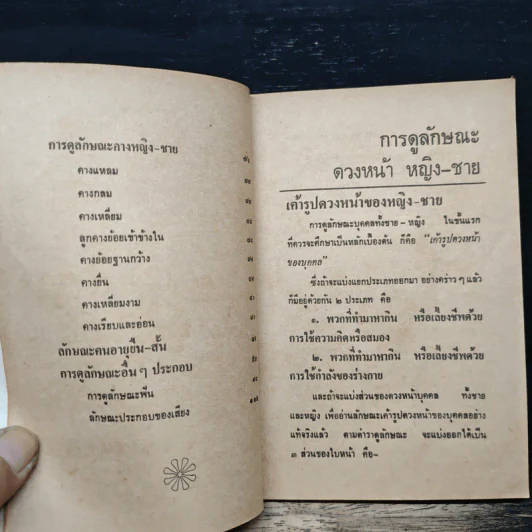 การดูลักษณะคางหญิง-ชาย
คางแหลม
คางกลม
คางเหลี่ยม
ลูกคางย้อยเข้าข้างใน
คางย้อยฐานกว้าง
คางยื่น
คางเหลี่ยมงาม
คางเรียบและอ่อน
ลักษณะคนอายุยืน-สั้น
การดูลักษณะอื่น ๆ ประกอบ
การดูลักษณะฟัน
ลักษณะประกอบของเสียง
การดูลักษณะ
ดวงหน้า หญิง-ชาย
เค้ารูปดวงหน้าของหญิง-ชาย
การดูลักษณะบุคคลทั้งชาย-หญิง ในขั้นแรก
ที่ควรจะศึกษาเป็นหลักเบื้องต้น ก็คือ "เค้ารูปดวงหน้า
ของบุคคล"
ซึ่งถ้าจะแบ่งแยกประเภทออกมา อย่างคร่าว ๆ แล้ว
ก็มีอยู่ด้วยกัน ๒ ประเภท คือ
๑. พวกที่ทำมาหากิน หรือเลี้ยงชีพด้วย
การใช้ความคิดหรือสมอง
๒. พวกที่ทำมาหากิน หรือเลี้ยงชีพด้วย
การใช้กำลังของร่างกาย
และถ้าจะแบ่งส่วนของดวงหน้าบุคคล ทั้งชาย
และหญิง เพื่ออ่านลักษณะเค้ารูปดวงหน้าของบุคคลอย่าง
แท้จริงแล้ว ตามตำราดูลักษณะ จะแบ่งออกได้เป็น
๓ ส่วนของใบหน้า คือ-